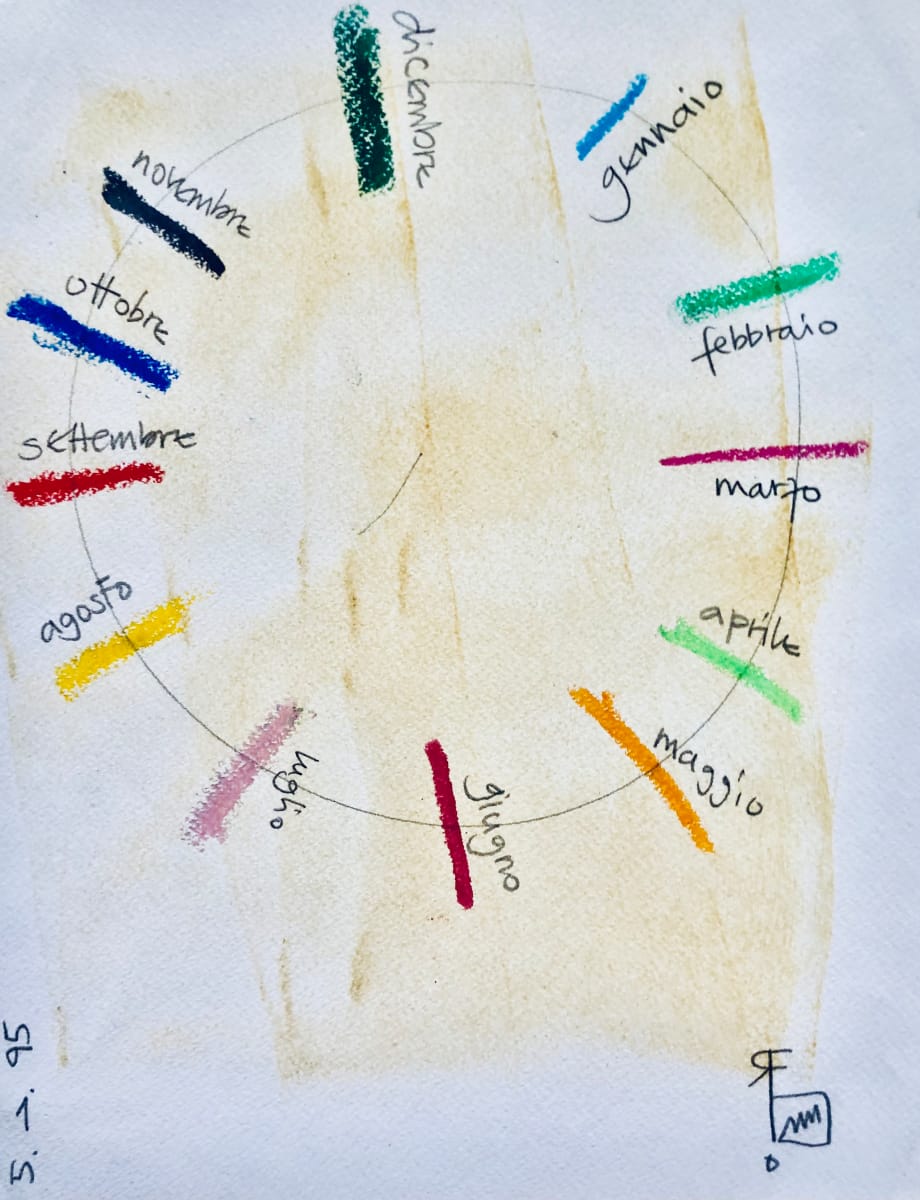 dicembre
gennaio
febbraio
marzo
aprile
maggio
giugno
luglio
agosto
settembre
ottobre
novembre
5. 1. 95